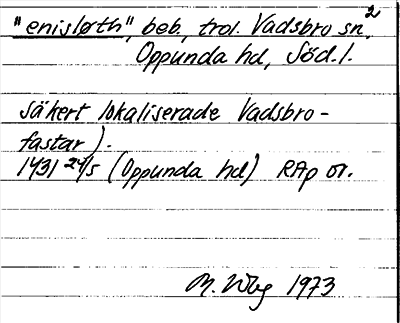 "enisløth", beb., trol. Vadsbro sn, 2
Oppunda hd, Söd.l.
säkert lokaliserade Vadsbro-
fastar).
1431 24/5 (Oppunda hd) RAp or.
M. Wbg 1973